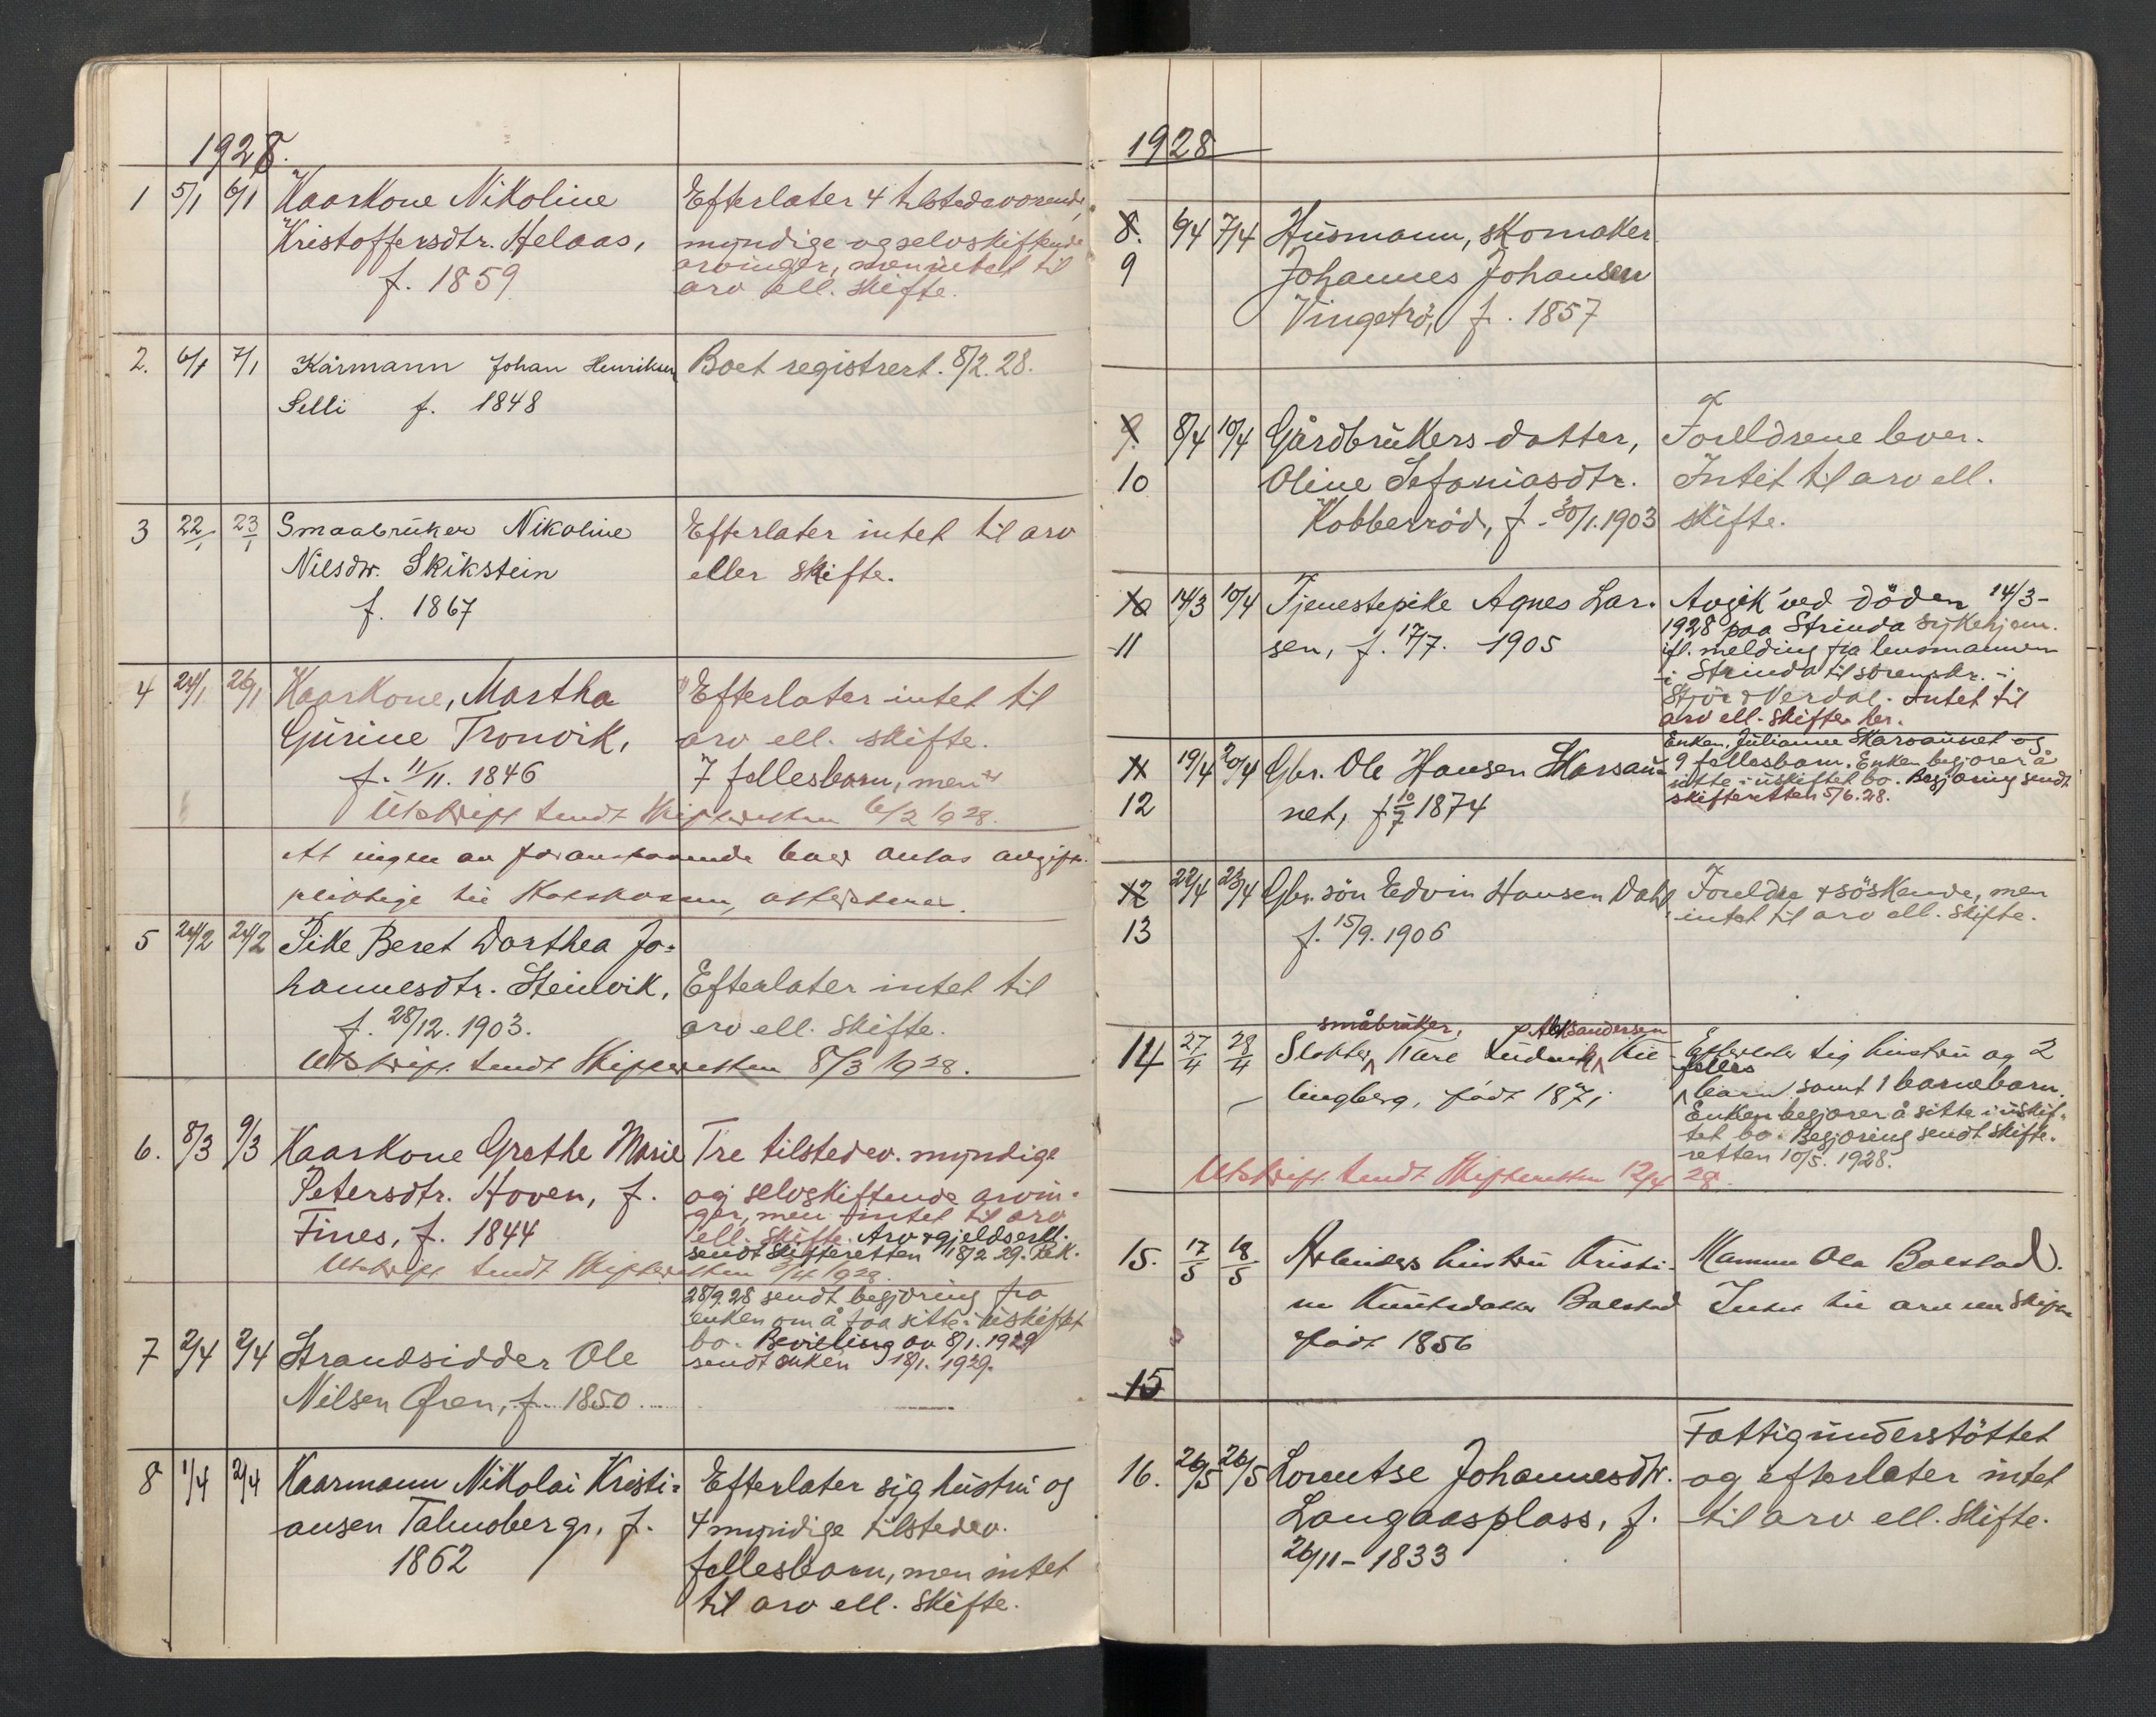 1928.
1 5/1 6/1 Kaarkone Nikoline Efterlater 4 tilstedeværende,
Kristoffersdtr. Helaas, myndige og selvskiftende
arvinger, men intet til
f. 1859 arv ell. skifte.
2. 6/1 7/1 Kårmann Johan Henriksen Boet registrert. 8/2. 28.
Selli f. 1848
3 22/1 23/1 Smaabruker Nikoline Efterlater intet til arv
Nilsdtr. Skikstein eller skifte.
f. 1867
4 24/1 26/1 Kaarkone, Martha Efterlater intet til
Gurine Tronvik, arv ell. skifte.
f. 11/11. 1846 7 fellesbarn, men
Utskrift sendt Skifteretten 6/2 1928.
At ingen av foranstaaende boer antas avgifts-
pliktige til Statskassen, attesteres.
5 24/2 24/2 Pike Beret Dorthea Jo-
hannesdtr. Steinvik, Efterlater intet til
f. 28/12. 1903. arv ell. skifte.
Utskrift sendt Skifteretten 8/3 1928.
6. 8/3 9/3 Kaarkone Grethe Marie Tre tilstedev. myndige
Petersdtr. Hoven, f. og selvskiftende arvin-
ger, men intet til arv
Fines, f. 1844 ell. skifte. Arv & gjeldserkl.
sendt skifteretten 18/2 29. Rek.
Utskrift sendt Skifteretten 3/4 1928.
28/9. 28 sendt begjæring fra
enken om å faa sitte i uskiftet
bo. Bevilling av 8/1. 1929
7 2/4 2/4 Strandsidder Ole sendt enken 18/1. 1929.
Nilsen Øren, f. 1850
8 1/4 2/4 Kaarmann Nikolai Kristi- Efterlater sig hustru og
ansen Talmoberg, f. 4 myndige tilstedev.
1862 fellesbarn, men intet
til arv ell. skifte.
1928
8. 6/4 7/4 Husmann, skomaker
9 Johannes Johansen
Vingetrø, f. 1857
9. 8/4 10/4 Gårdbrukers datter, Foreldrene lever.
10 Oline Sefaniasdtr. Intet til arv ell.
Kobberrød, f. 30/1. 1903 skifte.
10 14/3 10/4 Tjenestepike Agnes Lar- Avgik ved døden 14/3-
1928 paa Strinda sykehjem.
11 sen, f. 17/7. 1905 ifl. melding fra lensmannen
i Strinda til sorenskr. i
Stjør & Verdal. Intet til
arv ell. skifte her.
Enken, Julianne Skarsaunet og
11 19/4 20/4 Gbr. Ole Hansen Skarsau- 9 fellesbarn. Enken begjærer å
sitte i uskiftet bo. Begjæring sendt
12 net, f. 10/7 1874 skifteretten 5/6. 28.
12 22/4 23/4 Gbr. søn Edvin Hansen Dahl, Foreldre & søskende, men
intet til arv ell. skifte.
13 f. 15/9. 1906
småbruker, Aleksandersen
14 27/4 28/4 Slakter Kare Ludvik Kie- Efterlater sig hustru og 2
felles
lingberg, født 1871 barn samt 1 barnebarn.
Enken begjærer å sitte i uskif-
tet bo. Begjæring sendt skifte-
retten 10/5. 1928.
Utskrift sendt Skifteretten 12/4 28.
15. 17/5 18/5 Arbeiders hustru Kristi- Mannen Ola Balstad.
ne Knutsdatter Balstad Intet til arv ell skifte
født 1856
15
Fattigunderstøttet
16. 26/5 26/5 Lorentse Johannesdtr. og efterlater intet
Langaasplass, f. til arv ell. skifte.
26/11- 1833